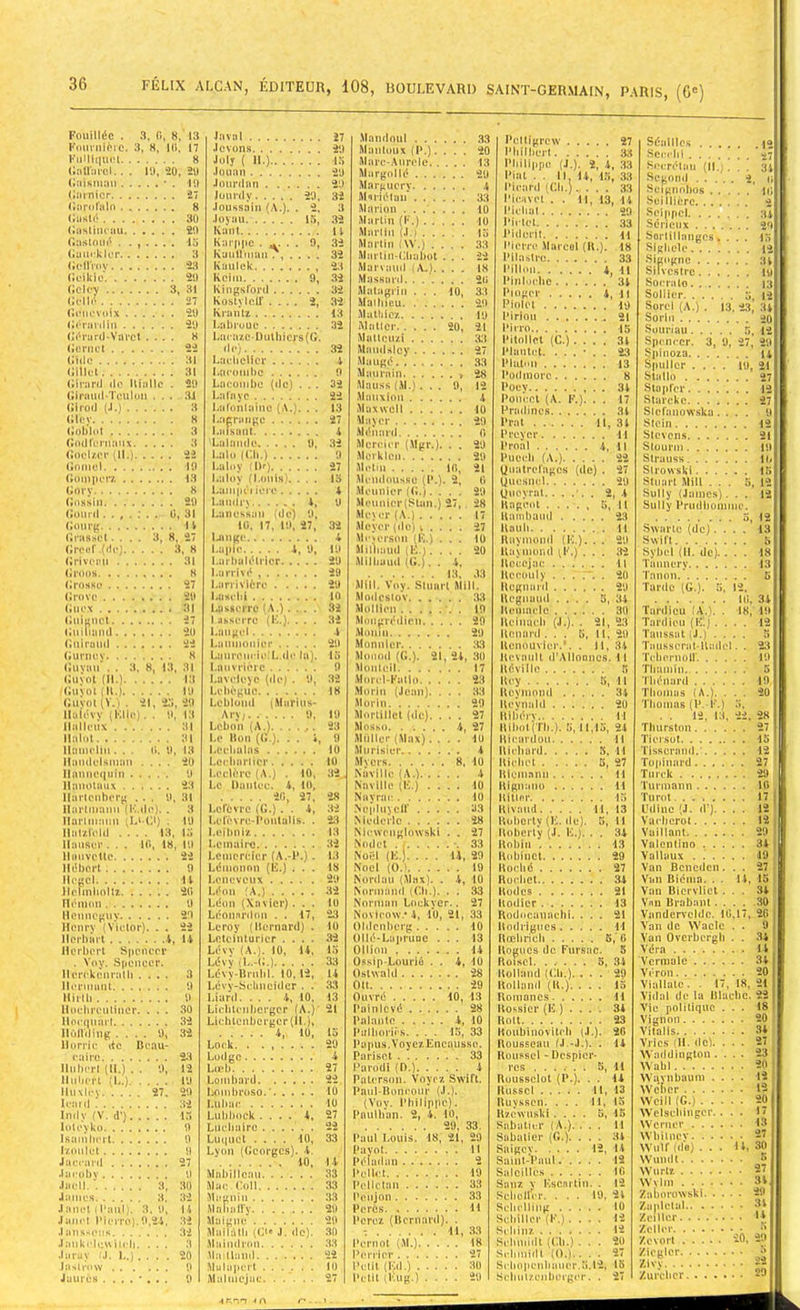 36 FÉLIX ALCAN, ÉDITEUR, 108, BOULEVARD SAINT-GERMAIN, PARIS, (6e)
Fouillée . 3, 6, 8, 13
Fournière. 3, 8, 16, 17
Fulliquet. . . . . 8
Gaffarel. . . 19, 20, 29
Gaisman . . . . . 19
Garnier. . . . . 27
Garofalo . . . . . 8
Gasté. . . . . 30
Gastineau. . . . . 29
Gauckler. . . . . 3
Geffroy . . . . . 23
Geikie. . . . . 29
Geley . . . . . 3, 31
Gellé . . . . . 27
Genevoix . . . . . 29
Gérardin . . . . . 29
Gérard-Varet . . . . 8
Gernet . . . . . 22
Gide . . . . . 31
Gillet. . . . . 31
Girard de Rialle . 29
Giraud-Teulon . . . . 31
Girod (J.) . . . . . 3
Gley. . . . . 8
Goblot . . . . . 3
Godfernaux. . . . . 3
Goelzer (H.). . . . . 22
Gomel. . . . . 19
Gomperz . . . . . 13
Gory. . . . . 8
Gossin. . . . . 29
Gourd . . . . . 6, 31
Gourg. . . . . 14
Grasset . . . . 3, 8, 27
Greef (de) . . . . . 3, 8
Griveau . . . . . 31
Groos. . . . . 8
Grosso . . . . . 27
Grove . . . . . 29
Guex . . . . . 31
Guignet. . . . . 27
Guilland. . . . . 20
Guiraud . . . . . 22
Gurney. . . . . 8
Guyau . . 3, 8, 13, 31
Guyot (H.). . . . . 13
Guyot (R.). . . . . 19
Guyot (Y.) . 21, 25, 29
Halévy (Elie) . . 9, 13
Halleux . . . . . 31
Halot. . . . . 31
Hamelin. . . . 6, 9, 13
Handelsman . . . . 20
Hannequin . . . . . 9
Hanotaux . . . . . 23
Hartenberg . . . 9, 31
Hartmann (E.de). . 6
Hartmann (Lt-Cl) . 19
Hatzfeld . . . . 13, 15
Hauser . . . 16, 18, 19
Hauvette. . . . . 22
Hébert . . . . . 9
Hegel. . . . . 14
Helmholtz. . . . . 26
Hémon . . . . . 9
Henneguy. . . . . 29
Henry (Victor). . . 22
Herbart . . . . . 4, 14
Herbert Spencer
Voy. Spencer.
Herckenrath . . . . 3
Hermant. . . . . 9
Hirth . . . . . 9
Hochreutiner. . . . 30
Hocquart. . . . . 32
Höffding . . . . 9, 32
Horric de Beaucaire. . . . . 23
Hubert (H.) . . 9, 12
Hubert (L.). . . . . 19
Huxley. . . . . 27, 29
Icard . . . . . 32
Indy (V. d') . . . . . 15
Ioteyko. . . . . 9
Isambert. . . . . 9
Izoulet . . . . . 9
Jaccard . . . . . 27
Jacoby . . . . . 9
Jaell. . . . . 3, 30
James. . . . . 3, 32
Janet (Paul). 3, 9, 14
Janet (Pierre). 9,24, 32
Janssens. . . . . 32
Jankelewitch. . . . . 3
Jaray (J. L.). . . . . 20
Jastrow . . . . . 9
Jaurès . . . . . 9
Javal . . . . . 27
Jevons. . . . . 29
Joly ( H.). . . . . 15
Jouan . . . . . 29
Jourdan . . . . . 29
Jourdy. . . . . 29, 32
Joussain (A.). . 2, 3
Joyau. . . . . 15, 32
Kant. . . . . 14
Karppe . . . . . 9, 32
Kauffman . . . . . 32
Kaulek. . . . . 23
Keim. . . . . 9, 32
Kingsford . . . . . 32
Kostyleff . . . . 2, 32
Krantz . . . . . 13
Labroue . . . . . 32
Lacaze-Duthiers(G.
de) . . . . . 32
Lachelier . . . . . 4
Lacombe . . . . . 9
Lacombe (de) . . . 32
Lafaye . . . . . 22
Lafontaine (A.). . . 13
Lagrange . . . . . 27
Laisant . . . . . 4
Lalande. . . . . 9, 32
Lalo (Ch.) . . . . . 9
Laloy (Dr). . . . . 27
Laloy (Louis). . . . 15
Lamperière. . . . . 4
Landry. . . . . 4, 9
Lanessan (de) 9,
16, 17, 19, 27, 32
Lange. . . . . 4
Lapie. . . . . 4, 9, 19
Larbalétrier. . . . . 29
Larrivé . . . . . 29
Larrivière . . . . . 29
Laschi . . . . . 10
Lasserre (A.) . . . . 32
Lasserre (E.). . . . 32
Laugel. . . . . 4
Laumonier . . . . . 29
Laurencie(L.de la). 15
Lauvrière . . . . . 9
Laveleye (de) . . 9, 32
Lebègue. . . . . 18
Leblond (Marius-
Ary). . . . . 9, 19
Lebon (A.). . . . . 23
Le Bon (G.). . . 4, 9
Lechalas . . . . . 10
Lechartier . . . . . 10
Leclère (A.) . 10, 32
Le Dantec. 4, 10,
26, 27, 28
Lefèvre (G.) . . 4, 32
Lefèvre-Pontalis. . 23
Leibniz. . . . . 13
Lemaire. . . . . 32
Lemercier (A.-P.) . 13
Lémonon (E.) . . . 18
Leneveux . . . . . 29
Léon (A.) . . . . . 32
Léon (Xavier) . . . 10
Léonardon . . 17, 23
Leroy (Bernard) . 10
Letainturier . . . . 32
Lévy (A.). 10, 14, 15
Lévy (L.-G.). . . . . 33
Lévy-Bruhl. 10,12, 14
Lévy-Schneider . . 33
Liard. . . . . 4, 10, 13
Lichtenberger (A.) 21
Lichtenberger(H.),
4, 10, 15
Lock. . . . . 29
Lodge. . . . . 4
Lœb. . . . . 27
Lombard. . . . . 22
Lombroso. . . . . 10
Lubac . . . . . 10
Lubbock . . . . 4, 27
Luchaire . . . . . 22
Luquet . . . . 10, 33
Lyon (Georges). 4,
10, 14
Mabilleau. . . . . 33
Mac Coll. . . . . 33
Magnin . . . . . 33
Mahaffy. . . . . 29
Maigne . . . . . 29
Mailath (Cte J. de). 30
Maindron. . . . . 33
Maitland. . . . . 22
Malapert . . . . . 10
Malmejac. . . . . 27
Mandoul . . . . . 33
Mantoux (P.). . . . 20
Marc-Aurele. . . . . 13
Margollé . . . . . 29
Marguery. . . . . 4
Mariétan . . . . . 33
Marion . . . . . 10
Martin (F.) . . . . . 10
Martin (J.) . . . . . 15
Martin (W.) . . . . 33
Martin-Chabot . . . 22
Marvaud (A.). . . . 18
Massard. . . . . 26
Matagrin . . . 10, 33
Mathieu. . . . . 29
Mathiez. . . . . 19
Matter. . . . . 20, 21
Matteuzi . . . . . 33
Maudsley . . . . . 27
Maugé. . . . . 33
Maurain. . . . . 28
Mauss (M.) . . . 9, 12
Mauxion . . . . . 4
Maxwell . . . . . 10
Mayer . . . . . 29
Ménard. . . . . 6
Mercier (Mgr.). . . 29
Merklen. . . . . 29
Metin . . . . . 16, 21
Mendousse (P.). 2, 6
Meunier (G.) . . . . 29
Meunier(Stan.) 27, 28
Meyer (A.) . . . . . 17
Meyer (de) . . . . . 27
Meyerson (E.) . . . 10
Milhaud (E.). . . . . 20
Milhaud (G.). . . 4,
13, 33
Mill. Voy. Stuart Mill.
Modestov. . . . . 33
Mollien . . . . . 19
Mongrédien. . . . . 29
Monin. . . . . 29
Monnier. . . . . 33
Monod (G.). 21, 24, 30
Monteil. . . . . 17
Morel-Fatio. . . . . 23
Morin (Jean). . . . 33
Morin. . . . . 29
Mortillet (de). . . . 27
Mosso. . . . . 4, 27
Müller (Max). . . . 10
Murisier. . . . . 4
Myers. . . . . 8, 10
Naville (A.). . . . . 4
Naville (E.) . . . . . 10
Nayrac. . . . . 10
Nepluyeff . . . . . 33
Niederle . . . . . 28
Niewenglowski . . 27
Nodet . . . . . 33
Noël (E.). . . . 14, 29
Noel (O.). . . . . 19
Nordau (Max). . 4, 10
Normand (Ch.). . . 33
Norman Lockyer. . 27
Novicow. 4, 10, 21, 33
Oldenberg . . . . . 10
Ollé-Laprune . . . 13
Ollion . . . . . 14
Ossip-Lourié . . 4, 10
Ostwald . . . . . 28
Ott. . . . . 29
Ouvré . . . . . 10, 13
Painlevé . . . . . 28
Palante . . . . . 4, 10
Palhoriès. . . . 15, 33
Papus.Voyez Encausse.
Pariset . . . . . 33
Parodi (D.). . . . . 4
Paterson. Voyez Swift.
Paul-Boncour (J.).
(Voy. Philippe).
Paulhan. 2, 4, 10,
29, 33
Paul Louis. 18, 21, 29
Payot. . . . . 11
Péladan . . . . . 2
Pellet. . . . . 19
Pelletan . . . . . 33
Penjon . . . . . 33
Perès. . . . . 11
Perez (Bernard). .
11, 33
Pernot (M.). . . . . 18
Perrier . . . . . 27
Petit (Ed.) . . . . . 30
Petit (Eug.) . . . . . 29
Pettigrew . . . . . 27
Philbert. . . . . 33
Philippe (J.). 2, 4, 33
Piat . . 11, 14, 15, 33
Picard (Ch.) . . . . 33
Picavet . . 11, 13, 14
Pichat. . . . . 29
Pictet. . . . . 33
Piderit. . . . . 11
Pierre Marcel (R.). 18
Pilastre. . . . . 33
Pillon. . . . . 4, 11
Pinloche . . . . . 34
Pioger . . . . . 4, 11
Piolet . . . . . 19
Piriou . . . . . 21
Pirro. . . . . 15
Pitollet (C.) . . . . 34
Plantet. . . . . 23
Platon . . . . . 13
Podmore . . . . . 8
Poey. . . . . 34
Poncet (A. F.). . . 17
Pradines. . . . . 34
Prat . . . . . 11, 34
Preyer. . . . . 11
Proal . . . . . 4, 11
Puech (A.). . . . . 22
Quatrefages (de) . 27
Quesnel. . . . . 29
Queyrat. . . . . 2, 4
Rageot . . . . . 5, 11
Rambaud . . . . . 23
Rauh. . . . . 11
Raymond (E.). . . 29
Raymond (P.) . . . 32
Recejac . . . . . 11
Recouly . . . . . 20
Regnard . . . . . 29
Regnaud . . . . . 5, 34
Reinach (J.). . 21, 23
Renard . . . 5, 11, 29
Renouvier. . . 11, 34
Revault d'Allonnes. 11
Réville . . . . . 5
Rey . . . . . 5, 11
Reymond . . . . . 34
Reynald . . . . . 20
Ribéry. . . . . 11
Ribot(Th.). 5,11,15, 24
Ricardou. . . . . 11
Richard. . . . . 5, 11
Richet . . . . . 5, 27
Riemann . . . . . 11
Rignano . . . . . 11
Ritter. . . . . 15
Rivaud. . . . . 11, 13
Roberty (E. de). 5, 11
Roberty (J. E.). . . 34
Robin . . . . . 13
Robinet. . . . . 29
Roché . . . . . 27
Rochet. . . . . 34
Rodes . . . . . 21
Rodier . . . . . 13
Rodocanachi. . . . 21
Rodrigues . . . . . 11
Rœhrich . . . . . 5, 6
Rogues de Fursac. 5
Roisel. . . . . 5, 34
Rolland (Ch.). . . . 29
Rolland (R.). . . . 15
Romanes . . . . . 11
Rossier (E.) . . . . 34
Rott. . . . . 23
Roubinovitch (J.). 26
Rousseau (J.-J.). . 14
Roussel-Despier-
res . . . . . 5, 11
Rousselot (P.). . . 14
Russel. . . . . 11, 13
Ruyssen. . . . 11, 15
Rzewuski . . . . . 5, 15
Sabatier (A.). . . . 11
Sabatier (G.). . . . 34
Saigey. . . . . 12, 14
Saint-Paul. . . . . 12
Saleilles . . . . . 16
Sanz y Escartin. . 12
Schefer. . . . . 19, 21
Schelling . . . . . 10
Schiller (F.) . . . . 12
Schinz. . . . . 12
Schmidt (Ch.). . . 20
Schmidt (O.). . . . 27
Schopenhauer.5,12, 15
Schutzenberger. . 27
Séailles . . . . . 12
Secchi . . . . . 27
Secrétan (H.) . . . 34
Segond . . . . . 2,
Seignobos . . . . . 16
Seillière. . . . . 2
Seippel. . . . . 34
Sérieux . . . . . 29
Sertillanges . . . . 15
Sighele. . . . . 12
Sigogne . . . . . 34
Silvestre. . . . . 19
Socrate. . . . . 13
Sollier. . . . . 5, 12
Sorel (A.) . 13, 23, 34
Sorin . . . . . 20
Souriau. . . . . 5, 12
Spencer. 3, 9, 27, 29
Spinoza. . . . . 14
Spuller . . . . . 19, 21
Stallo . . . . . 27
Stapfer . . . . . 12
Starcke. . . . . 27
Stefanowska . . . . 9
Stein . . . . . 12
Stevens. . . . . 21
Stourm. . . . . 19
Strauss . . . . . 16
Strowski. . . . . 15
Stuart Mill . . . 5, 12
Sully (James) . . . 12
Sully Prudhomme.
5, 12
Swarte (de) . . . . 13
Swift. . . . . 5
Sybel (H. de). . . . 18
Tannery. . . . . 13
Tanon. . . . . 5
Tarde (G.). 5, 12,
16, 34
Tardieu (A.). . 18, 19
Tardieu (E.) . . . . 12
Taussat (J.) . . . . . 5
Tausserat-Radel . . 23
Tchernoff. . . . . 19
Thamin. . . . . 5
Thénard . . . . . 19
Thomas (A.). . . . 20
Thomas (P.-F.) 5,
12, 13, 22, 28
Thurston . . . . . 27
Tiersot. . . . . 15
Tisserand. . . . . 12
Topinard. . . . . 27
Turck . . . . . 29
Turmann . . . . . 16
Turot . . . . . 17
Udine (J. d'). . . . . 12
Vacherot. . . . . 12
Vaillant. . . . . 29
Valentino . . . . . 34
Vallaux . . . . . 19
Van Beneden. . . . 27
Van Bema. . . . 14, 15
Van Biervliet . . . 34
Van Brabant . . . . 30
Vandervelde. 16,17, 26
Van de Waele . . 9
Van Overbergh . . 34
Véra . . . . . 14
Vermale . . . . . 34
Véron. . . . . 20
Viallate. . . 17, 18, 21
Vidal de la Blache. 22
Vie politique . . . 18
Vignon . . . . . 20
Vitalis. . . . . 34
Vries (H. de). . . . 27
Waddington. . . . . 23
Wahl. . . . . 20
Waynbaum . . . . . 12
Weber . . . . . 12
Weill (G.) . . . . . 20
Welschinger. . . . 17
Werner . . . . . 13
Whitney. . . . . 27
Wulf (de) . . . 14, 30
Wundt. . . . . 5
Wurtz . . . . . 27
Wylm . . . . . 34
Zaborowski. . . . . 29
Zapletal. . . . . 34
Zeiller . . . . . 14
Zeller. . . . . 5
Zevort . . . . . 20, 29
Ziegler. . . . . 5
Zivy. . . . . 22
Zurcher. . . . . 29